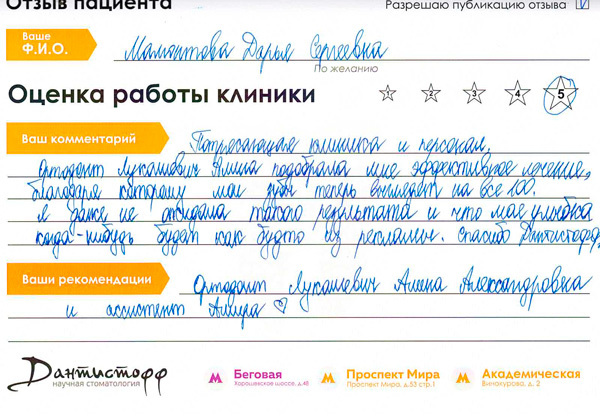 Отзыв пациента Разрешаю публикацию отзыва
Ваше Ф.И.О. Мамонтова Дарья Сергеевна
По желанию
Оценка работы клиники 1 2 3 4 5
Ваш комментарий Потрясающая клиника и персонал,
Ортодонт Лукашевич Алина подобрала мне эффективное лечение,
благодаря которому мои зубы теперь выглядят на все 100.
Я даже не ожидала такого результата и что моя улыбка
когда-нибудь будет как будто из рекламы. Спасибо Дантистофф,
Ваши рекомендации Ортодонт Лукашевич Алина Александровна
и ассистент Амира
Дантистофф
научная стоматология
Беговая Проспект Мира Академическая
Хорошевское шоссе, д.48 Проспект Мира, д.53 стр.1 Вилюкурова, д. 2